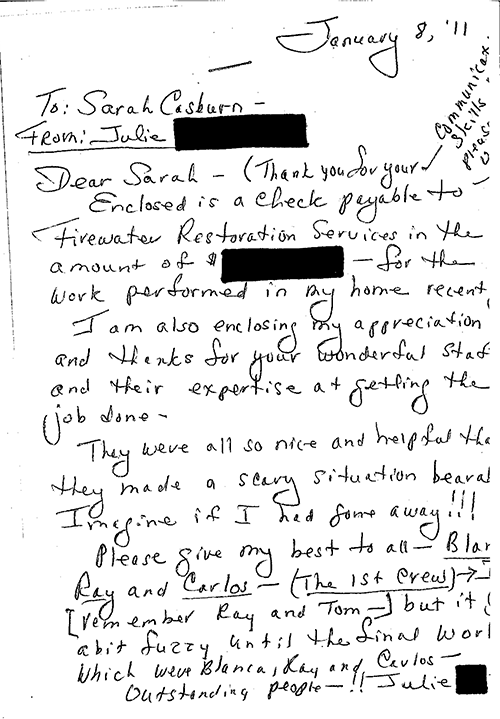 January 8, '11
To: Sarah Casburn -
From: Julie
Communicax.
skills
pleas.
Dear Sarah - (Thank you for your
Enclosed is a check payable to
Firewater Restoration Services in the
amount of $ - for the
work performed in my home recent
I am also enclosing my appreciation
and thanks for your wonderful staf
and their expertise at getting the
job done -
They were all so nice and helpful tha
they made a scary situation bearal
Imagine if I had gone away!!!
Please give my best to all - Blan
Ray and Carlos - (The 1st Crew) →
[remember Ray and Tom -] but it
a bit fuzzy until the final worl
which were Blanca, Ray and Carlos -
Outstanding people - !! Julie